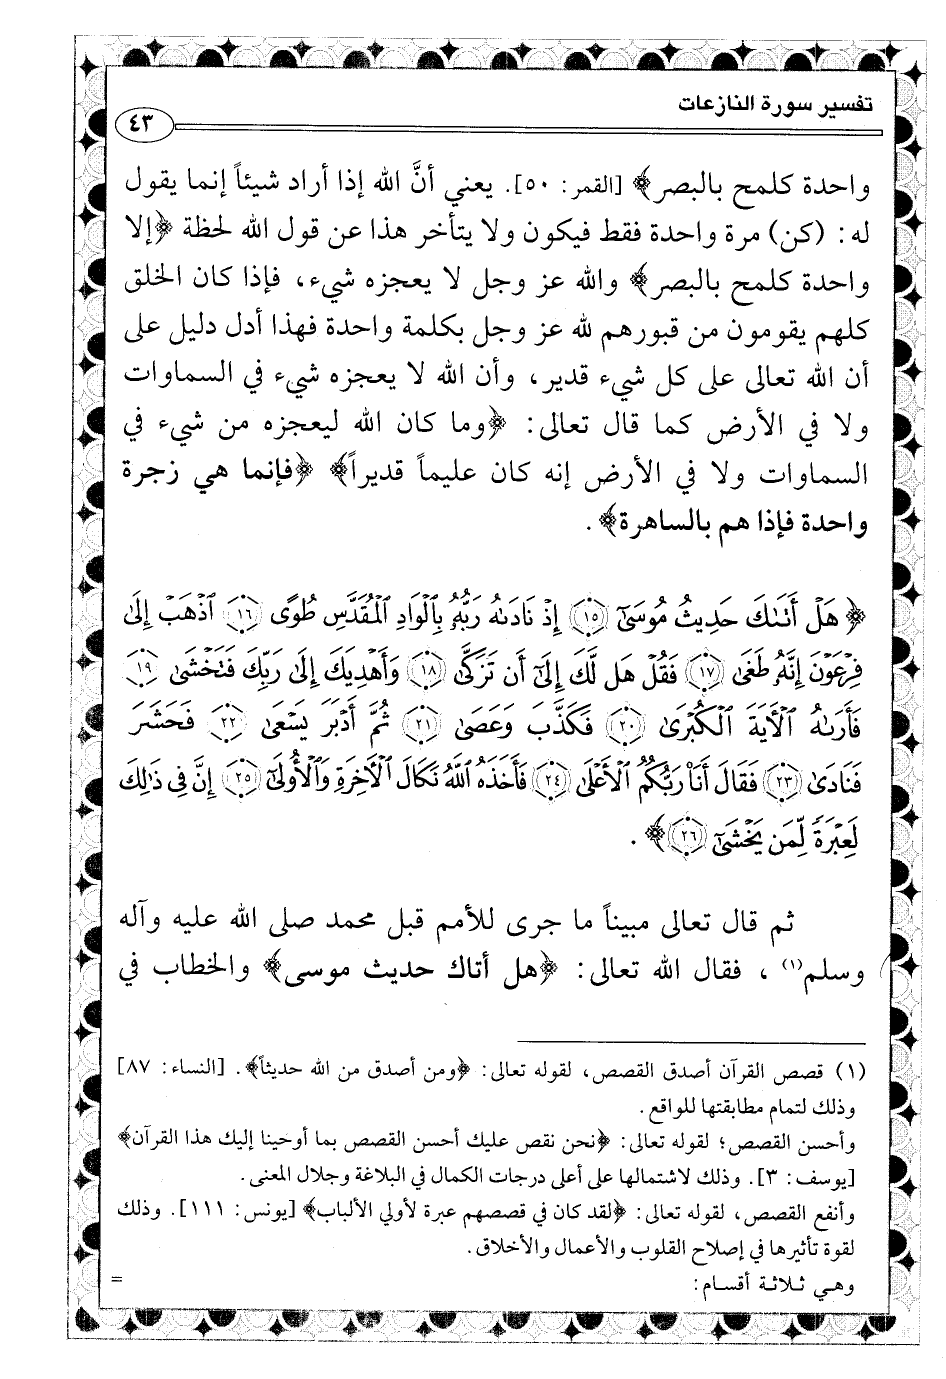 تفسير سورة النازعات
٤٣
واحدة كلمح بالبصر﴾ [القمر: ٥٠]. يعني أنَّ الله إذا أراد شيئاً إنما يقول
له: (كن) مرة واحدة فقط فيكون ولا يتأخر هذا عن قول الله لحظة ﴿إلا
واحدة كلمح بالبصر﴾ والله عز وجل لا يعجزه شيء، فإذا كان الخلق
كلهم يقومون من قبورهم لله عز وجل بكلمة واحدة فهذا أدل دليل على
أن الله تعالى على كل شيء قدير، وأن الله لا يعجزه شيء في السماوات
ولا في الأرض كما قال تعالى: ﴿وما كان الله ليعجزه من شيء في
السماوات ولا في الأرض إنه كان عليماً قديراً﴾ ﴿فإنما هي زجرة
واحدة فإذا هم بالساهرة﴾.
﴿هَلْ أَتَىٰكَ حَدِيثُ مُوسَىٰٓ ﴿١٥﴾ إِذْ نَادَىٰهُ رَبُّهُۥ بِٱلْوَادِ ٱلْمُقَدَّسِ طُوًى ﴿١٦﴾ ٱذْهَبْ إِلَىٰ
فِرْعَوْنَ إِنَّهُۥ طَغَىٰ ﴿١٧﴾ فَقُلْ هَل لَّكَ إِلَىٰٓ أَن تَزَكَّىٰ ﴿١٨﴾ وَأَهْدِيَكَ إِلَىٰ رَبِّكَ فَتَخْشَىٰ ﴿١٩﴾
فَأَرَىٰهُ ٱلْأَيَةَ ٱلْكُبْرَىٰ ﴿٢٠﴾ فَكَذَّبَ وَعَصَىٰ ﴿٢١﴾ ثُمَّ أَدْبَرَ يَسْعَىٰ ﴿٢٢﴾ فَحَشَرَ
فَنَادَىٰ ﴿٢٣﴾ فَقَالَ أَنَا۠ رَبُّكُمُ ٱلْأَعْلَىٰ ﴿٢٤﴾ فَأَخَذَهُ ٱللَّهُ نَكَالَ ٱلْأَخِرَةِ وَٱلْأُولَىٰٓ ﴿٢٥﴾ إِنَّ فِى ذَٰلِكَ
لَعِبْرَةً لِّمَن يَخْشَىٰٓ ﴿٢٦﴾﴾.
ثم قال تعالى مبيناً ما جرى للأمم قبل محمد صلى الله عليه وآله
وسلم(١)، فقال الله تعالى: ﴿هل أتاك حديث موسى﴾ والخطاب في
(١) قصص القرآن أصدق القصص، لقوله تعالى: ﴿ومن أصدق من الله حديثاً﴾. [النساء: ٨٧]
وذلك لتمام مطابقتها للواقع.
وأحسن القصص؛ لقوله تعالى: ﴿نحن نقص عليك أحسن القصص بما أوحينا إليك هذا القرآن﴾
[يوسف: ٣]. وذلك لاشتمالها على أعلى درجات الكمال في البلاغة وجلال المعنى.
وأنفع القصص، لقوله تعالى: ﴿لقد كان في قصصهم عبرة لأولي الألباب﴾ [يونس: ١١١]. وذلك
لقوة تأثيرها في إصلاح القلوب والأعمال والأخلاق.
وهي ثلاثة أقسام:
=